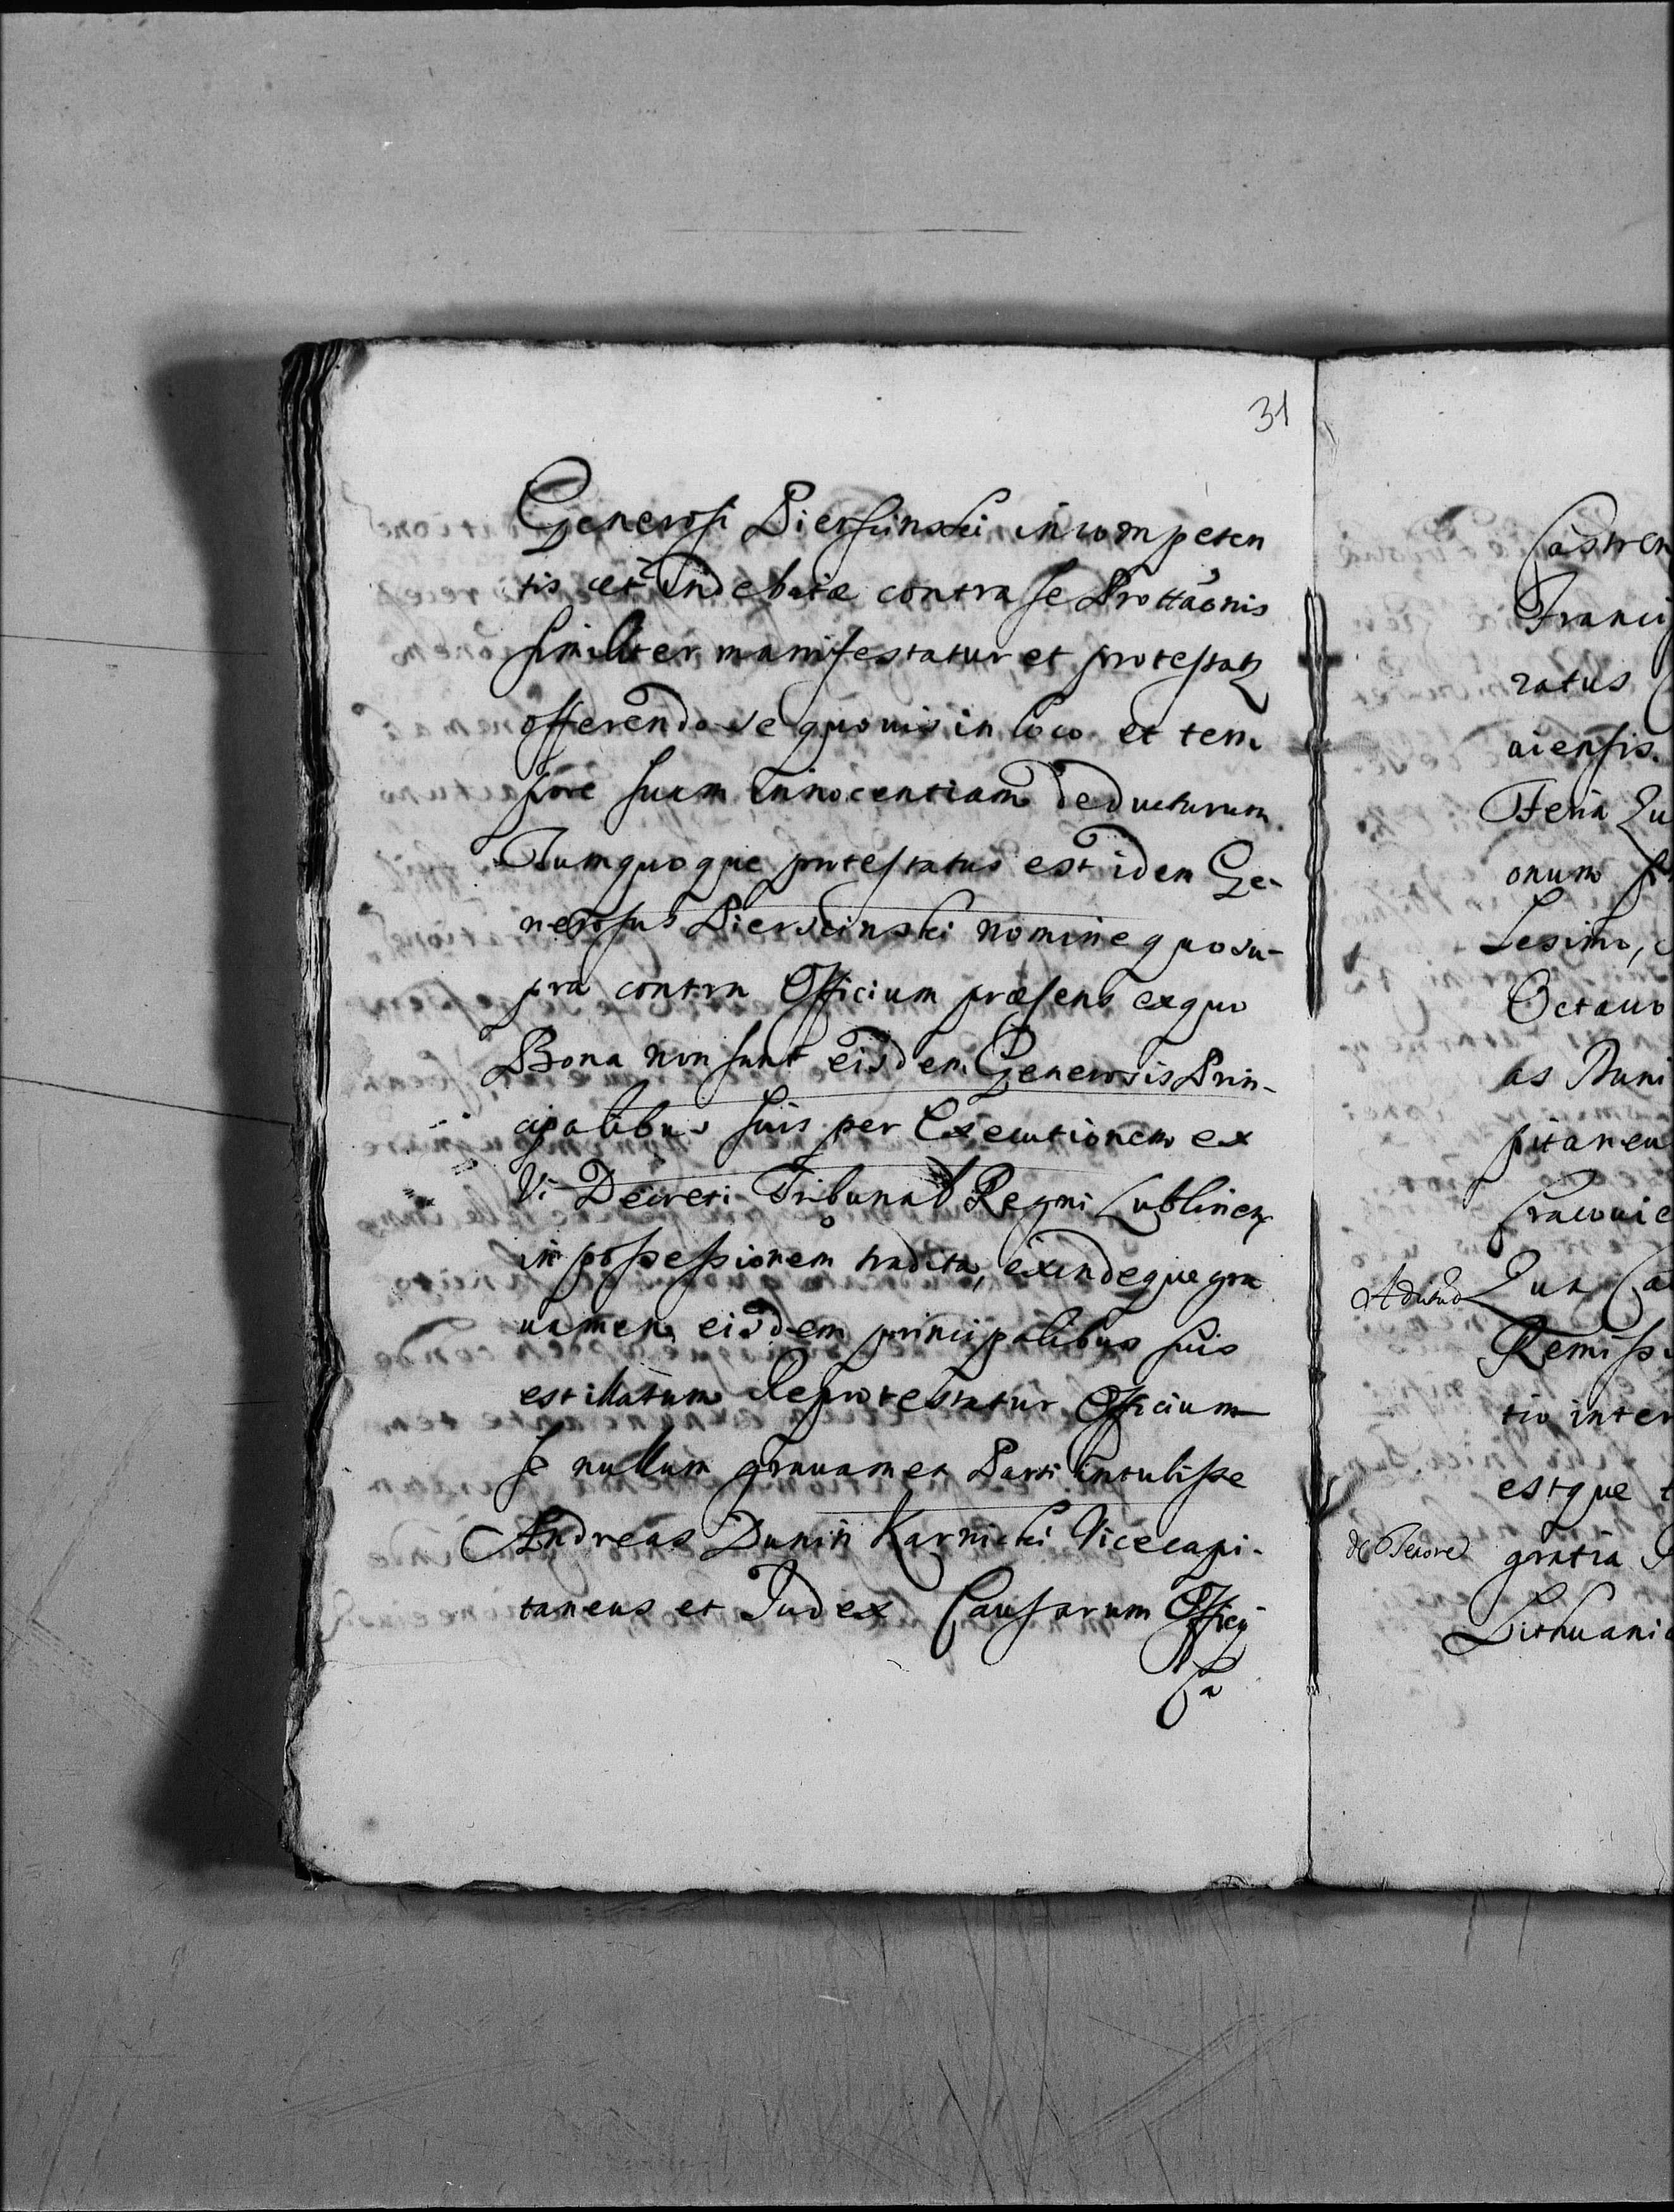 31
Generosi Pierscinski incompeten
tis et indebitæ contra se Prottaõnis
similiter manifestatur, et protestatz
offerendo se quouis in loco et tem
pore suam innocentiam deducturum.
Tumquoque protestatus est idem Ge-
nerosus Pierscinski nomine quo su-
pra contra Officium præsens exquo
Bona non sunt eisdem Generosis Prin-
cipalibus suis per Executionem ex
Vi Decreti Tribunal Regni Lublinen
in possessionem tradita, exindeque gra
uamen eisdem principalibus suis
est illatum Reprotestatur Officium
se nullum grauamen Parti intulisse
Andreas Dunin Karnicki Vicecapi-
taneus et Judex Causarum Officij
Ca
Castren
Franci
ratus
uiensis.
Feria Qu
onum
Lesimo,
Octauo
as Duni
pitaneu
Cracouie
Qua Ca
Remiss
tio inter
estque
de Tenore gratia
Lithuania